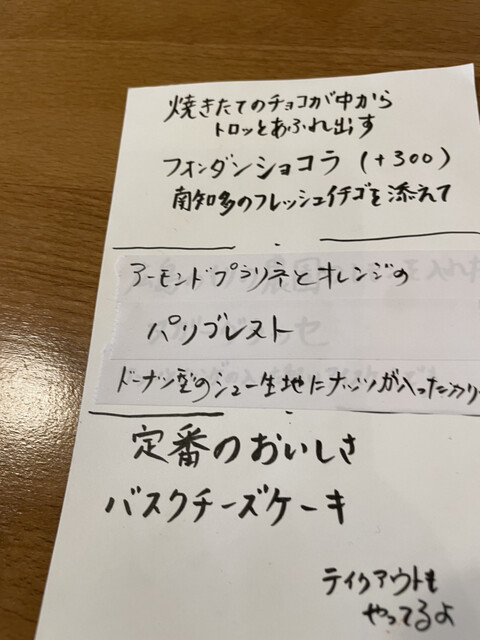 焼きたてのチョコが中から
トロッとあふれ出す
フォンダンショコラ (+300)
南知多のフレッシュイチゴを添えて
アーモンドプラリネとオレンジの
パリブレスト
ドーナツ型のシュー生地にナッツが入ったカリ
定番のおいしさ
バスクチーズケーキ
テイクアウトも
やってるよ